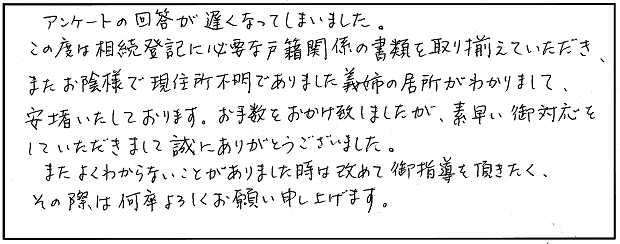 アンケートの回答が遅くなってしまいました。
この度は相続登記に必要な戸籍関係の書類を取り揃えていただき、
またお陰様で現住所不明でありました義姉の居所がわかりまして、
安堵いたしております。お手数をおかけ致しましたが、素早い御対応を
していただきまして誠にありがとうございました。
またよくわからないことがありました時は改めて御指導を頂きたく、
その際は何卒よろしくお願い申し上げます。